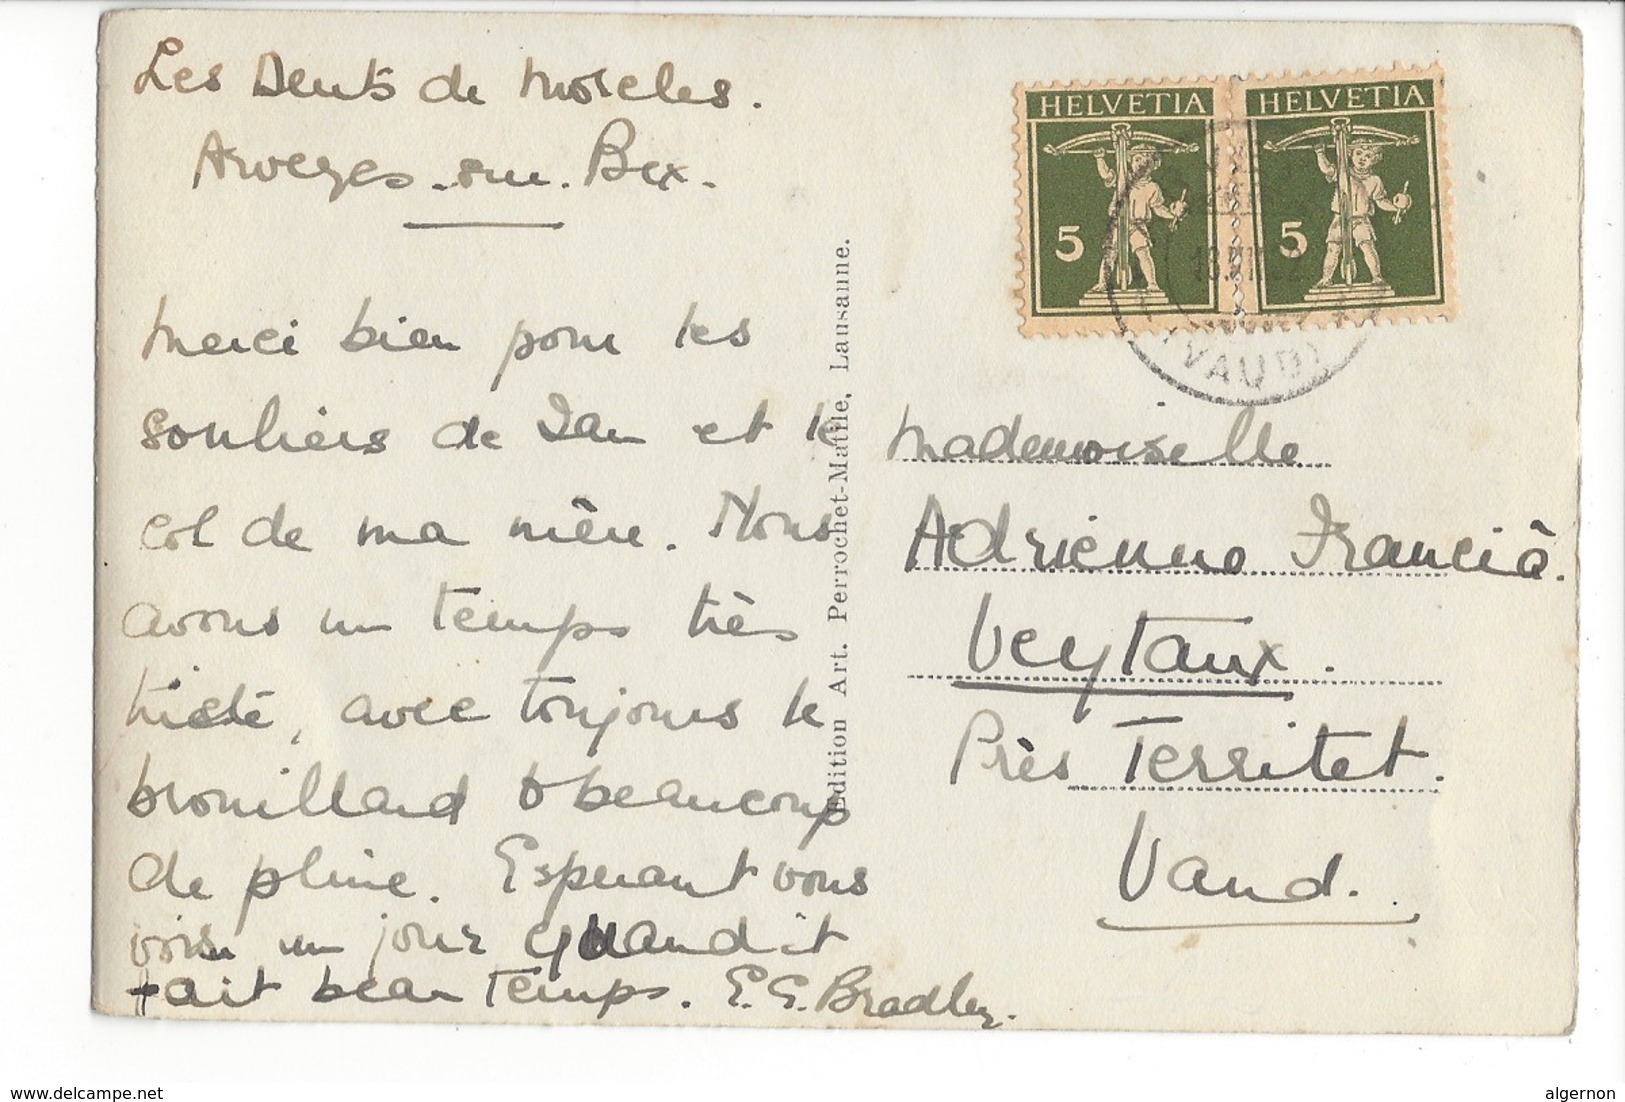 Les Dents de Morcles.
Arveyes-sur-Bex.
Merci bien pour les
souliers de Ian et le
col de ma mère. Nous
avons un temps très
triste, avec toujours le
brouillard & beaucoup
de pluie. Esperant vous
voir un jour quand it
fait beau temps. E.G. Bradley.
Edition Art. Perrochet-Matile, Lausanne.
HELVETIA HELVETIA
5 5
(VAUD)
Mademoiselle
Adrienne Franciâ.
Veytaux.
Près Territet.
Vaud.
delcampe.net
algernon